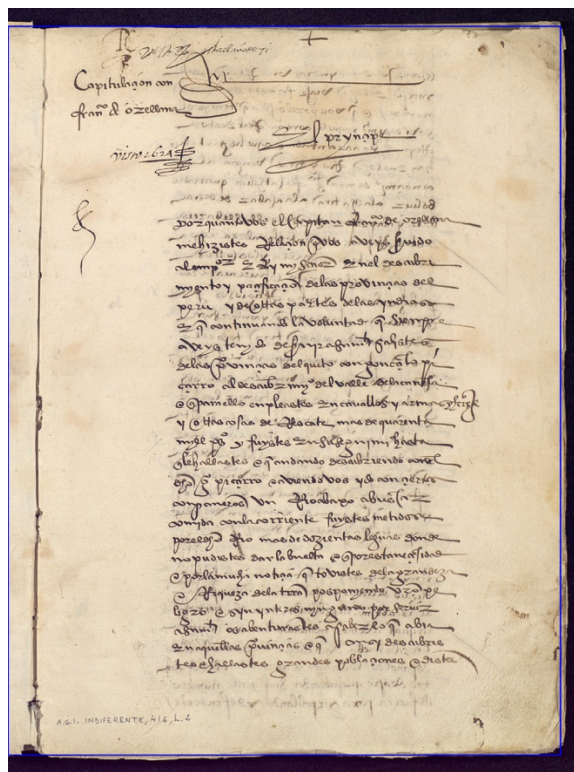 Capitulaçon con
fran^co de orellana
El prynçipe
por quanto vos el capitan fran^co de orellana
me hizistes Relaçion q vos aveys seruido
al emp^or e Rey my señor en el descubri
myento y paçificaçion de las provinçias del
peru y de otras partes de las yndias
e q continuando la voluntad q sienpre
aveys tenydo de seruir a su m^t salistes
de las provinçias del quito con gonçalo pi
çarro al descubrimy^o del valle de la canela
e para ello enpleastes en cavallos y armas y herraje
y otras cosas de Rescate mas de quarenta
mill p^os y fuystes en su seguimi^o hasta
q le hallastes e q andando descubriendo con el
dho g^o piçarro aviendo vos ydo con çiertos
conpañeros un Rio abaxo a buscar
comida con la corriente fuystes metidos
por el dho Rio mas de dozientas leguas donde
no pudistes dar la buelta e por esta neçesidad
e por la mucha notiçia q tovistes de la grandeza
e Riqueza de la tierra posponiendo v^ro pe
ligro e syn ynterese ninguno por seruir
a su m^t os aventurastes a saber lo q avia
en aquellas provinçias e q ansi descubris
tes e hallastes grandes poblaçiones e distes
A.G.I. INDIFERENTE, 416, L.2